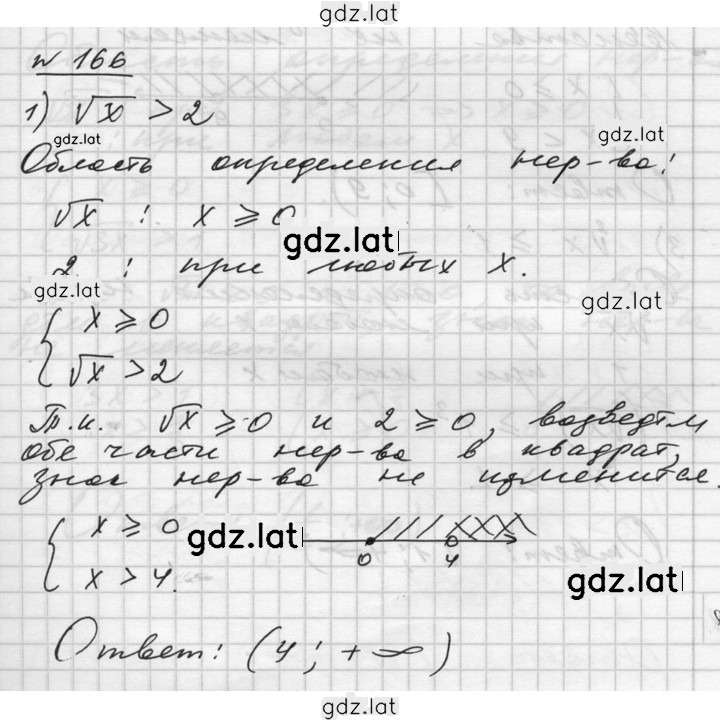 gdz.lat
№ 166
1) √x > 2
gdz.lat gdz.lat
Область определения нер-ва:
√x : x ⩾ 0
gdz.lat
2 : при любых x.
gdz.lat gdz.lat
{ x ⩾ 0
√x > 2
Т.к. √x ⩾ 0 и 2 ⩾ 0, возведём
обе части нер-ва в квадрат,
знак нер-ва не изменится.
{ x ⩾ 0
gdz.lat
x > 4.
0 4
gdz.lat
Ответ: (4; +∞)
gdz.lat